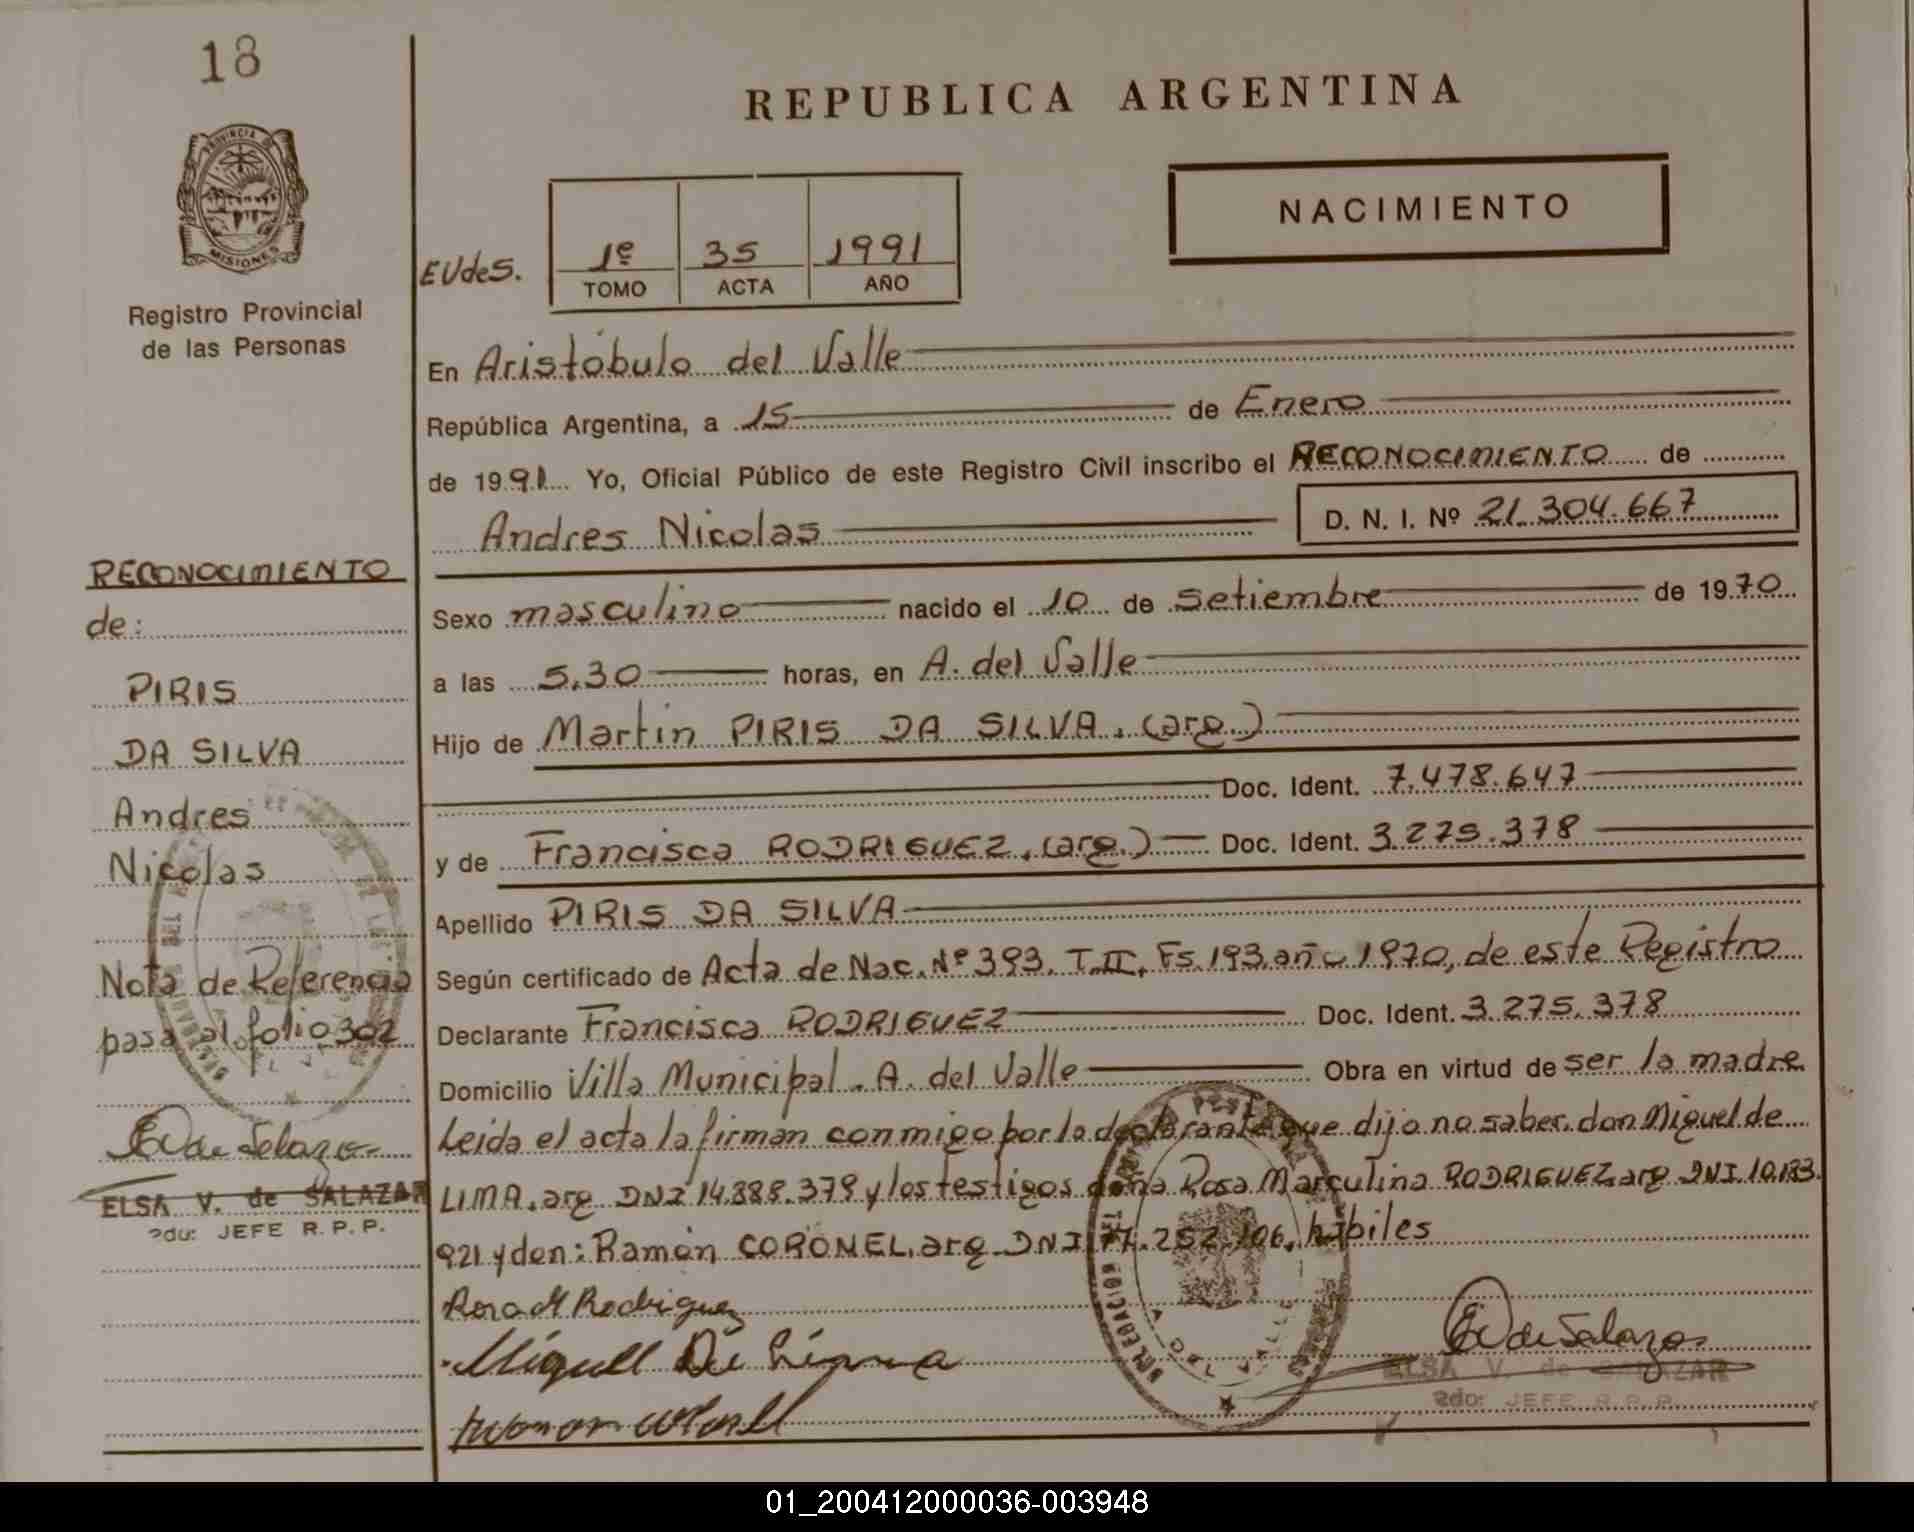 18
REPUBLICA ARGENTINA
PROVINCIA DE
MISIONES
Registro Provincial
de las Personas
NACIMIENTO
EVdeS.
1º 35 1991
TOMO ACTA AÑO
En Aristóbulo del Valle
República Argentina, a 15 de Enero
de 1991 Yo, Oficial Público de este Registro Civil inscribo el RECONOCIMIENTO de
Andres Nicolas D. N. I. Nº 21.304.667
Sexo masculino nacido el 10 de Setiembre de 1970
a las 5,30 horas, en A. del Valle
Hijo de Martin PIRIS DA SILVA. (arg.)
Doc. Ident. 7.478.647
y de Francisca RODRIGUEZ. (arg.) Doc. Ident. 3.275.378
Apellido PIRIS DA SILVA
Según certificado de Acta de Nac. Nº 393. T.II. Fs. 193 año 1970, de este Registro
Declarante Francisca RODRIGUEZ Doc. Ident. 3.275.378
Domicilio Villa Municipal. A. del Valle Obra en virtud de ser la madre
Leida el acta la firman conmigo por la declarante que dijo no saber, don Miguel de
LIMA. arg. DNI 14.888.379 y los testigos doña Rosa Marculina RODRIGUEZ. arg. DNI. 10.183.
921 y don: Ramón CORONEL. arg. DNI 252.106. hábiles
Rosa M Rodriguez
Miguel De Lima
EV de Salazar
ELSA V. de SALAZAR
2do: JEFE R.P.P.
RECONOCIMIENTO
de:
PIRIS
DA SILVA
Andres
Nicolas
Nota de Referencia
pasa al folio 302
EV de Salazar
ELSA V. de SALAZAR
2do: JEFE R.P.P.
DELEGACION
01_200412000036-003948